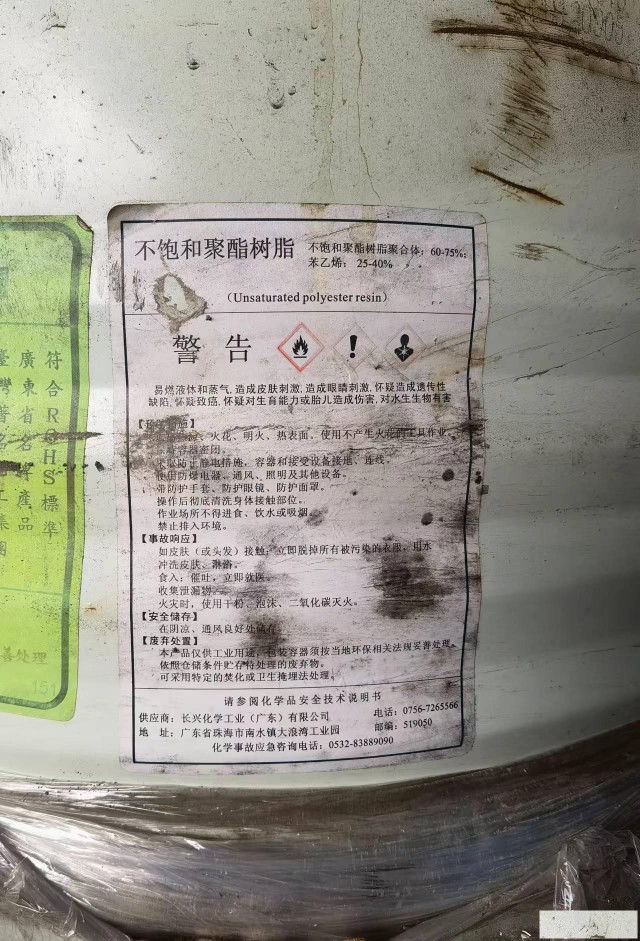 不饱和聚酯树脂
不饱和聚酯树脂聚合体：60-75%；
苯乙烯： 25-40%
（Unsaturated polyester resin）
警 告
易燃液体和蒸气，造成皮肤刺激，造成眼睛刺激，怀疑造成遗传性
缺陷，怀疑致癌，怀疑对生育能力或胎儿造成伤害，对水生生物有害
火花、明火、热表面、使用不产生火花的工具作业。
容器密闭。
防止静电措施，容器和接受设备接地、连线。
使用防爆电器、通风、照明及其他设备。
带防护手套、防护眼镜、防护面罩。
操作后彻底清洗身体接触部位。
作业场所不得进食、饮水或吸烟。
禁止排入环境。
【事故响应】
如皮肤（或头发）接触：立即脱掉所有被污染的衣服，用水
冲洗皮肤、淋浴。
食入：催吐，立即就医。
收集泄漏物。
火灾时，使用干粉、泡沫、二氧化碳灭火。
【安全储存】
在阴凉、通风良好处储存。
【废弃处置】
本产品仅供工业用途，包装容器须按当地环保相关法规妥善处理。
依照仓储条件贮存待处理的废弃物。
可采用特定的焚化或卫生掩埋法处理。
请参阅化学品安全技术说明书
供应商：长兴化学工业（广东）有限公司
电话：0756-7265566
地 址：广东省珠海市南水镇大浪湾工业园
邮编：519050
化学事故应急咨询电话：0532-83889090
符合RoHS標準
廣東省名牌產品
善处理
151